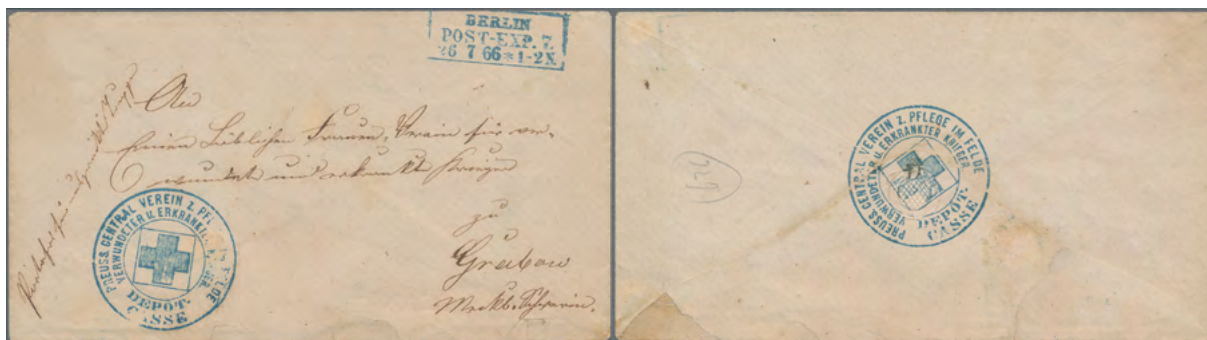 BERLIN
POST-EXP. 7.
26 7 66 * 1-2N.
An
Einen Löblichen Frauen-Verein für ver-
wundete und erkrankte Krieger
zu
Grabow
Meckb. Schwerin.
PREUSS. CENTRAL VEREIN Z. PFL
VERWUNDETER U. ERKRANKTE
DEPÔT-
CASSE
PREUSS. CENTRAL VEREIN Z. PFLEGE IM FELDE
VERWUNDETER U. ERKRANKTER KRIEGER
DEPÔT-
CASSE